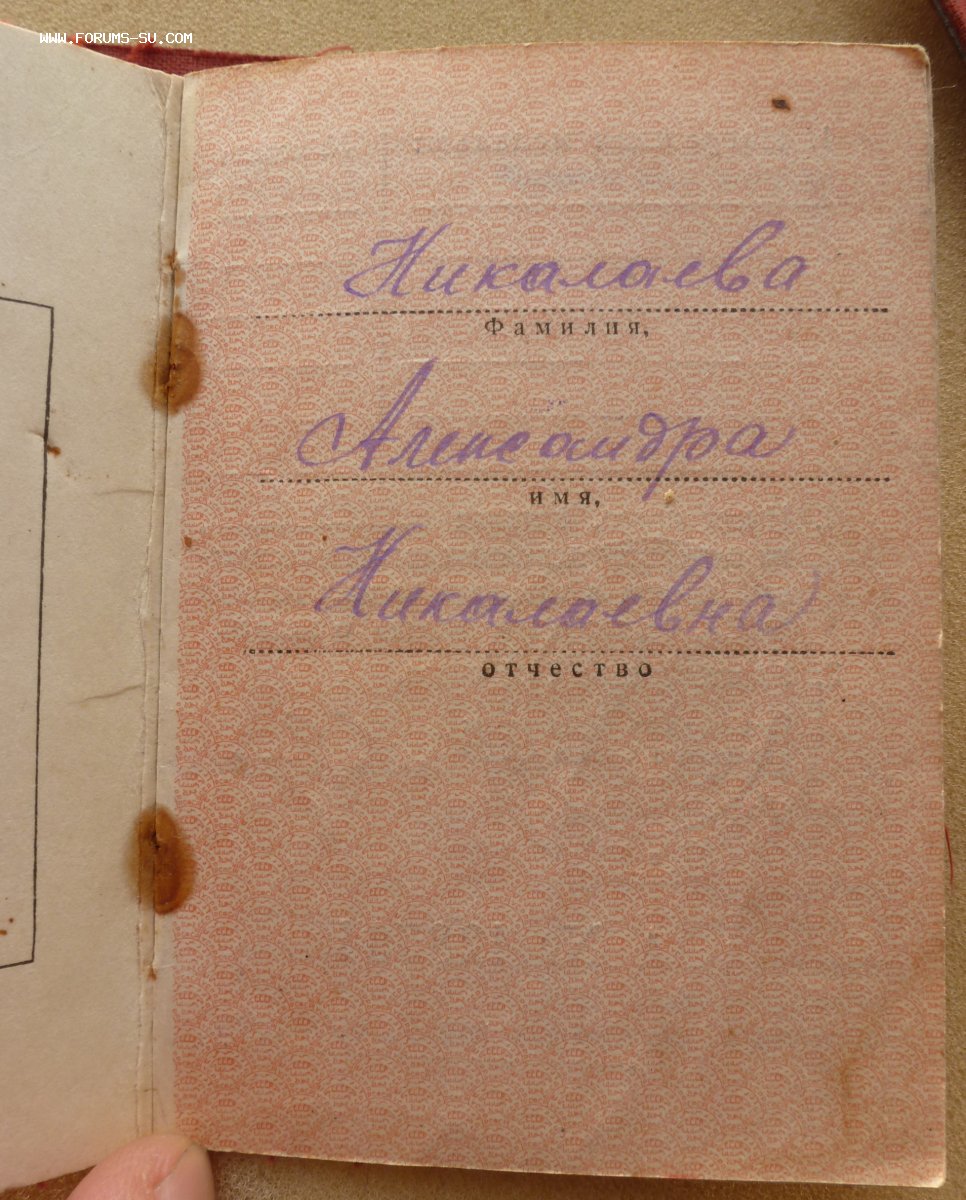 WWW.FORUMS-SU.COM
Никалаева
Фамилия,
Александра
имя,
Никалаевна
отчество